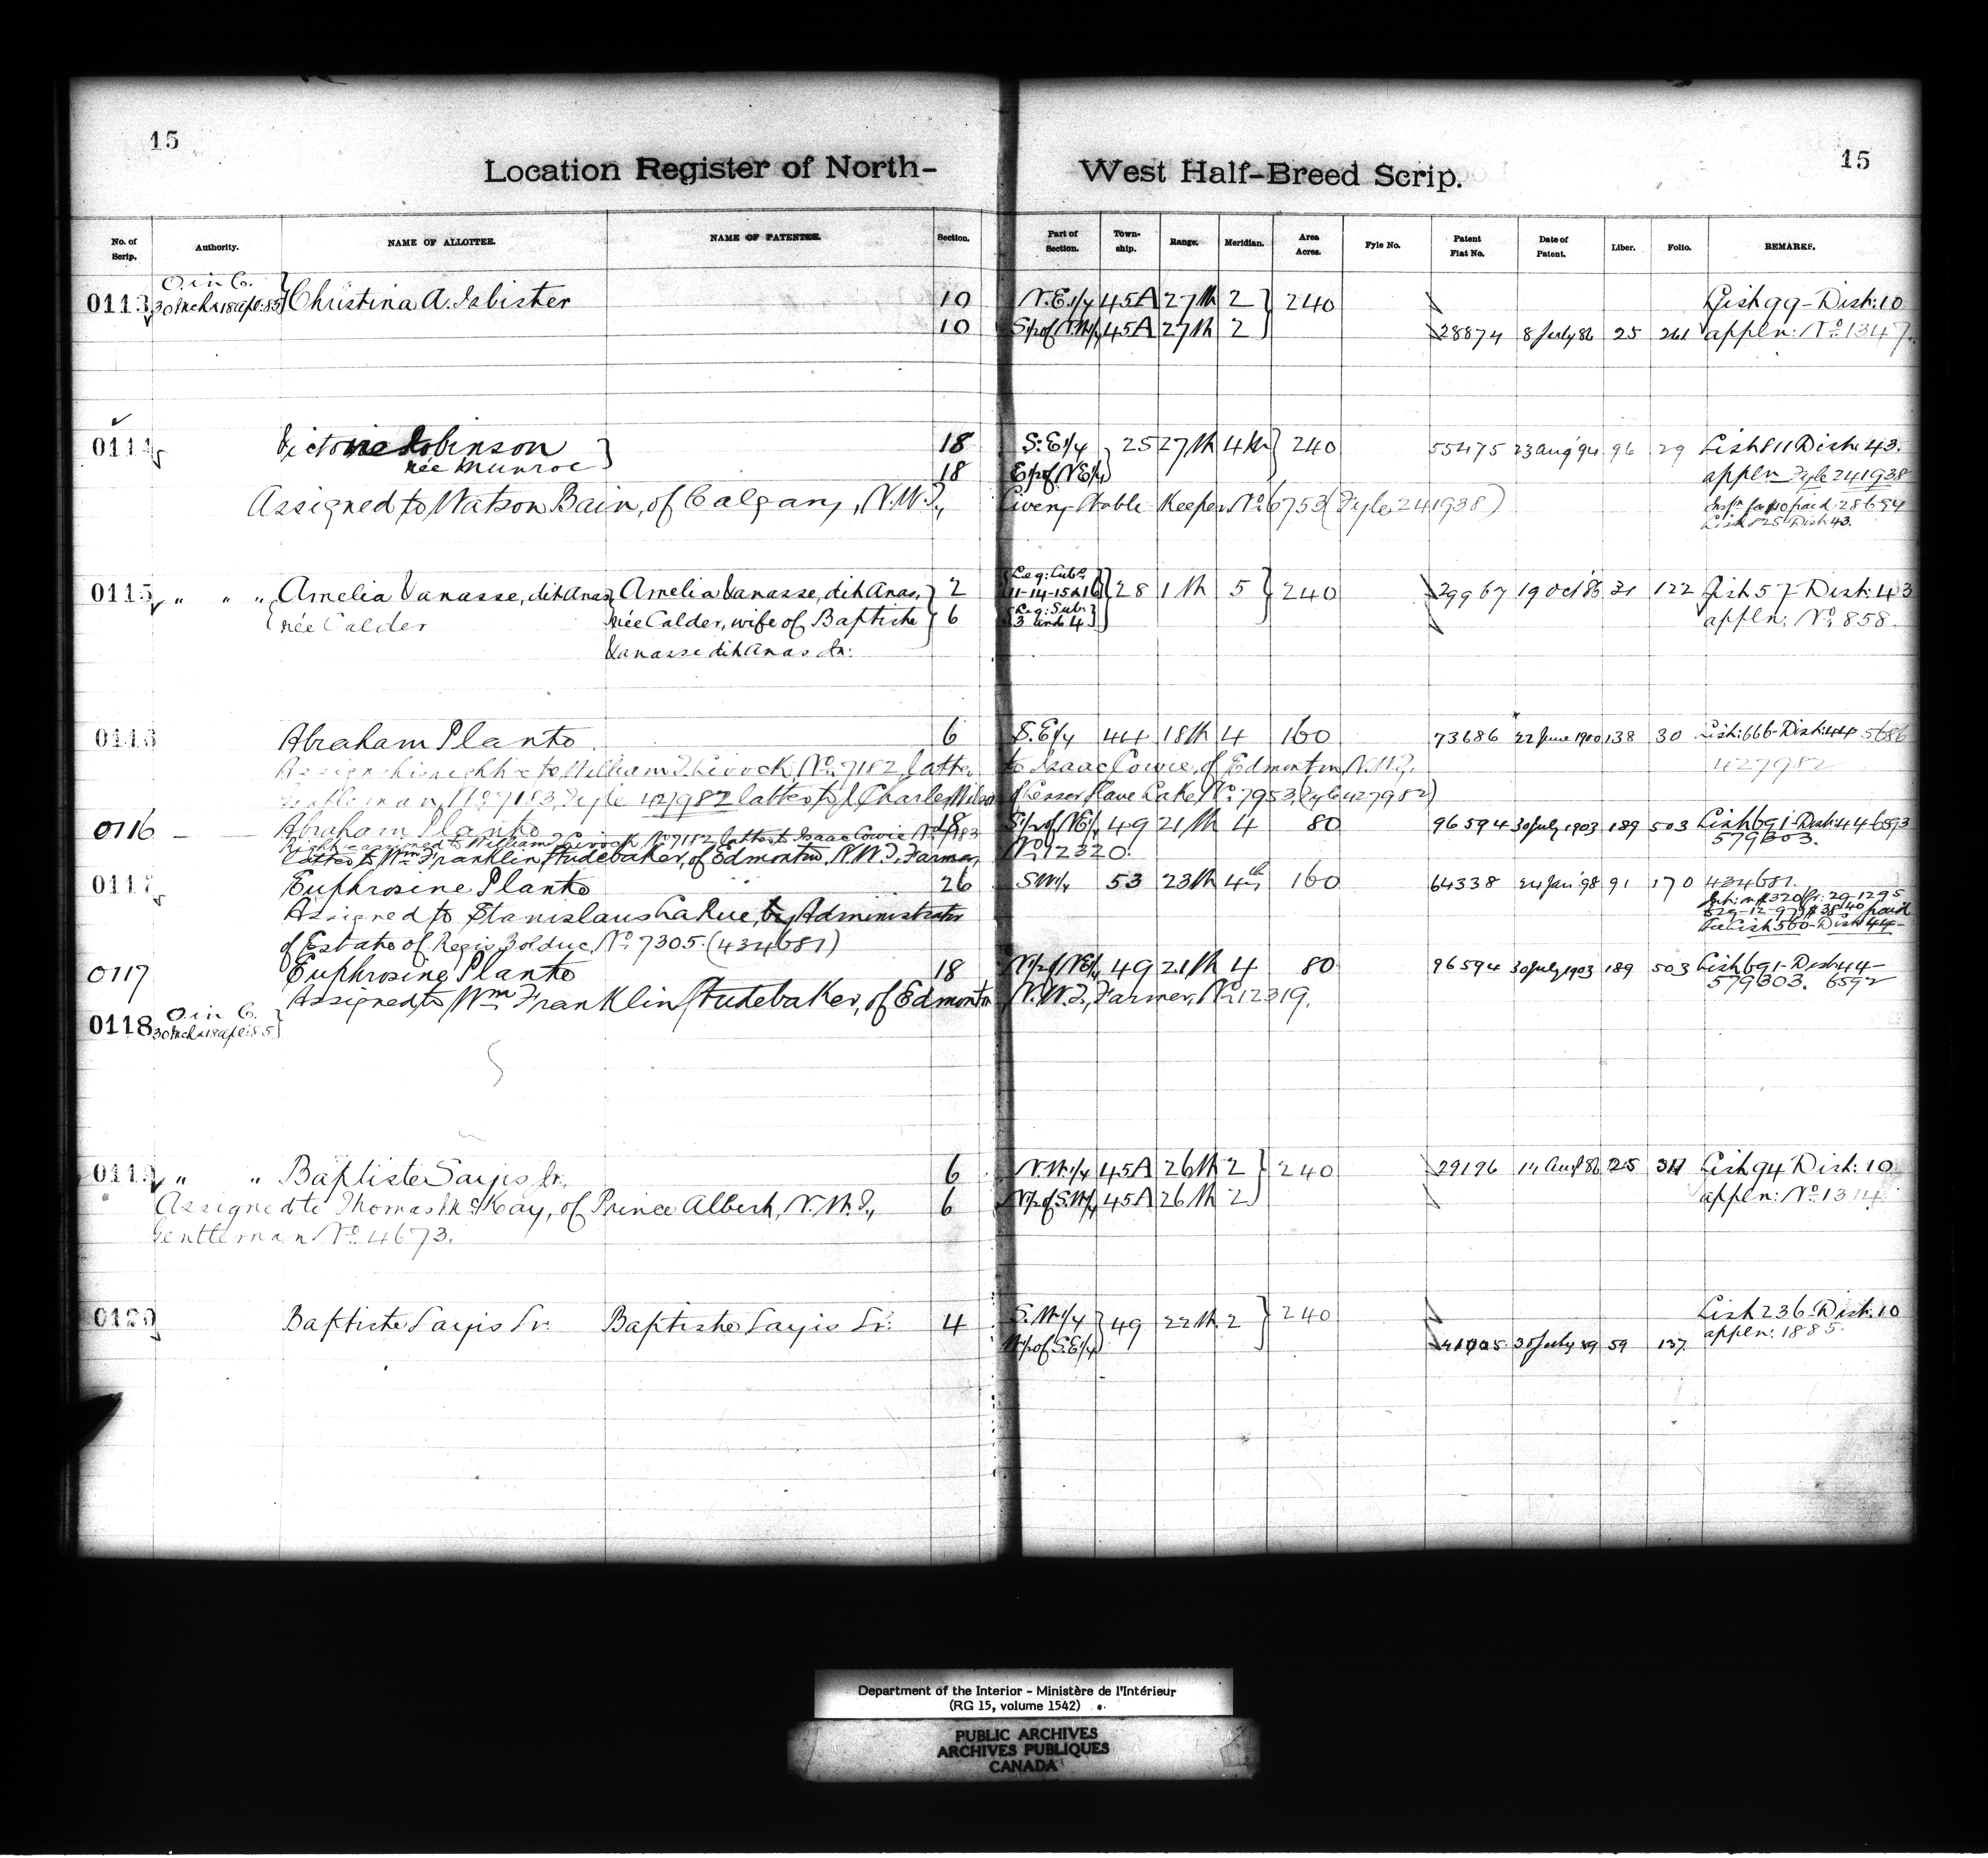 15
15
Location Register of North-West Half-Breed Scrip.
No. of Scrip. Authority. NAME OF ALLOTTEE. NAME OF PATENTEE. Section. Part of Section. Town-ship. Range. Meridian. Area Acres. Fyle No. Patent Fiat No. Date of Patent. Liber. Folio. REMARKS.
O. in C.
0113 30 Mch & 18 Apl: 85 Christina A. Isbister 10 N.E.1/4 45A 27th 2 240 List 99 - Dist: 10
10 S½ of N.W¼ 45A 27th 2 28874 8 July 86 25 261 appln: No. 1347.
0114 Victoria Robinson 18 S.E1/4 25 27th 4th 240 55475 23 Aug '94 96 29 List 811 Dist: 43.
née Munroe 18 E½ of N.E¼ appln Fyle 241938
Assigned to Watson Bain, of Calgary, N.W.T., Livery Stable Keeper No. 6753 (Fyle 241938) paid 28694
List 825 Dist 43.
0115 " " " Amelia Vanasse, dit Anas, Amelia Vanasse, dit Anas, 2 Leg: Sub: 11-14-15 & 16 28 1st 5 240 29967 19 Oct '86 31 122 List 57 - Dist: 43
née Calder née Calder, wife of Baptiste 6 Leg: Sub: 3 and 4 appln: No. 858.
Vanasse dit Anas Sr:
0116 Abraham Plante 6 S.E¼ 44 18th 4 160 73686 22 June 1900 138 30 List: 666 - Dist: 44 5686
to William J. No. 7182 latter to Isaac Cowie, of Edmonton, N.W.T. 427982
Gentleman, No. 7183, Fyle 427982 latter to J Charles Wilson of Lesser Slave Lake No. 7953 (Fyle 427982)
0116 — — Abraham Plante 18 S½ of N.E¼ 49 21st 4 80 96594 30 July 1903 189 503 List 691 - Dist: 44 6593
assigned to William J. No. 7182 latter to Isaac Cowie No. 7183 579303.
latter to Wm. Franklin Studebaker, of Edmonton, N.W.T., Farmer, No. 12320.
0117 Euphrosine Plante 26 S.W¼ 53 23rd 4th 160 64338 24 Jan '98 91 170 434681.
Assigned to Stanislaus LaRue, by Administrator $320 fr: 29-12-95
to 29-12-97 $38.40 paid
of Estate of Regis Bolduc, No. 7305. (434681) List 560 - Dist 44 -
0117 Euphrosine Plante 18 N½ of N.E¼ 49 21st 4 80 96594 30 July 1903 189 503 List 691 - Dist 44 -
579303. 6592
Assigned to Wm. Franklin Studebaker, of Edmonton N.W.T., Farmer, No. 12319.
O. in C.
0118 30 Mch & 18 Apl: 85
0119 " " Baptiste Sayis Jr. 6 N.W¼ 45A 26th 2 240 29196 14 Aug 86 25 311 List 94 Dist: 10
Assigned to Thomas McKay, of Prince Albert, N.W.T., 6 N½ of S.W¼ 45A 26th 2 appln: No. 1314
Gentleman No. 4673.
0120 Baptiste Sayis Sr. Baptiste Sayis Sr: 4 S.W¼ 49 22nd 2 240 List 236 - Dist: 10
W½ of S.E¼ 41005 30 July 89 59 137 appln: 1885.
Department of the Interior - Ministère de l'Intérieur
(RG 15, volume 1542)
PUBLIC ARCHIVES
ARCHIVES PUBLIQUES
CANADA